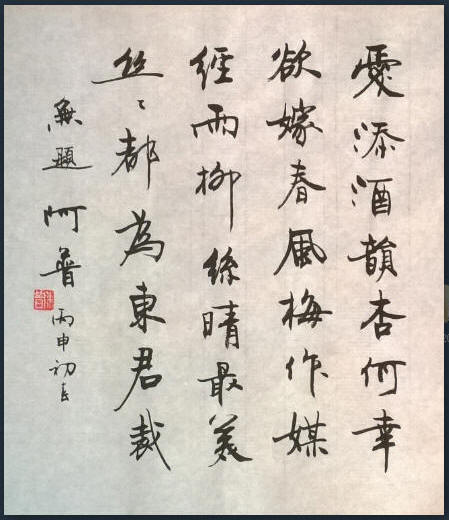 愛添酒韻杏何幸
欲嫁春風梅作媒
經雨柳絲晴最美
丝々都為東君裁
無題 阿普 丙申初